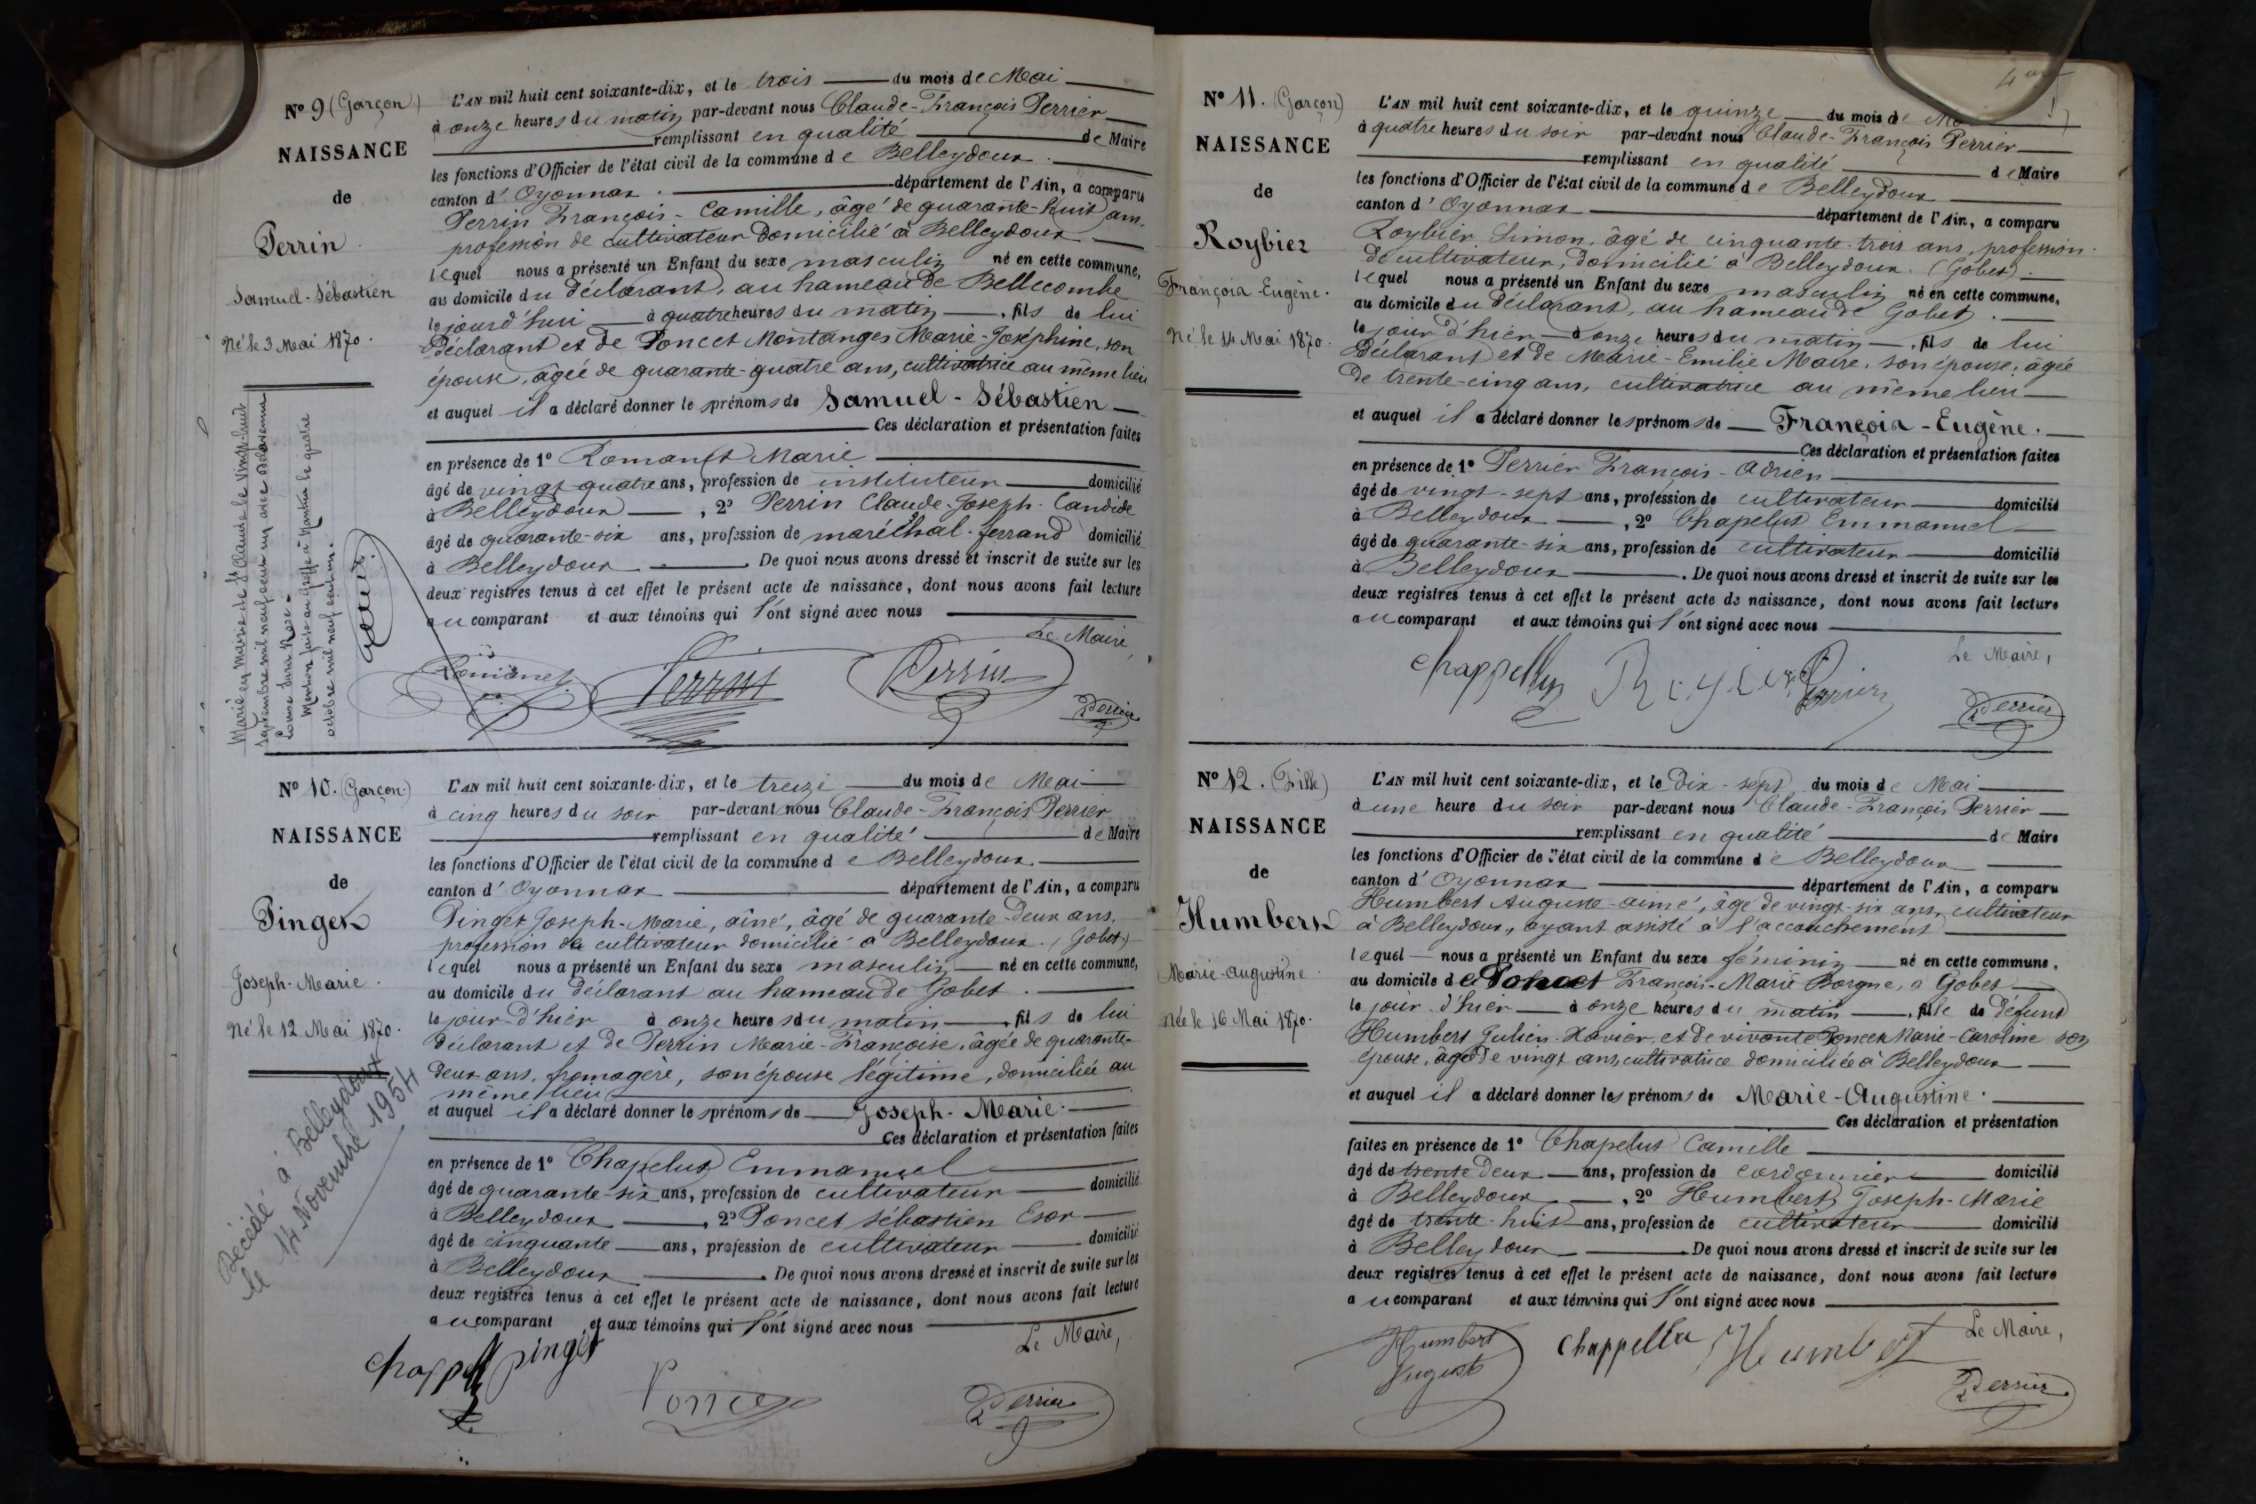 N° 9 (Garçon)
NAISSANCE
de
Perrin
Samuel-Sébastien
Né le 3 Mai 1870.
Marié en mairie de St Claude le vingt-huit
septembre mil neuf cent un avec
Louise Rose.
Mention faite au greffe à Nantua le quatre
octobre mil neuf cent un.
L'AN mil huit cent soixante-dix, et le trois du mois de Mai
à onze heures du matin par-devant nous Claude-François Perrier
remplissant en qualité de Maire
les fonctions d'Officier de l'état civil de la commune de Belleydoux
canton d'Oyonnax département de l'Ain, a comparu
Perrin François-Camille, âgé de quarante-huit ans,
profession de cultivateur domicilié à Belleydoux
lequel nous a présenté un Enfant du sexe masculin né en cette commune,
au domicile du déclarant, au hameau de Bellecombe
le jourd'hui à quatre heures du matin, fils de lui
Déclarant et de Poncet Montanges Marie-Joséphine, son
épouse, âgée de quarante-quatre ans, cultivatrice au même lieu
et auquel il a déclaré donner les prénoms de Samuel-Sébastien
Ces déclaration et présentation faites
en présence de 1° Romanet Marie
âgé de vingt quatre ans, profession de instituteur domicilié
à Belleydoux, 2° Perrin Claude-Joseph-Candide
âgé de quarante-six ans, profession de maréchal-ferrand domicilié
à Belleydoux. De quoi nous avons dressé et inscrit de suite sur les
deux registres tenus à cet effet le présent acte de naissance, dont nous avons fait lecture
au comparant et aux témoins qui l'ont signé avec nous
Le Maire,
Romanet Perrin Perrin
Perrier
N° 10. (Garçon)
NAISSANCE
de
Pinget
Joseph-Marie.
Né le 12 Mai 1870.
Décédé à Belleydoux
le 14 Novembre 1954
L'AN mil huit cent soixante-dix, et le treize du mois de Mai
à cinq heures du soir par-devant nous Claude-François Perrier
remplissant en qualité de Maire
les fonctions d'Officier de l'état civil de la commune de Belleydoux
canton d'Oyonnax département de l'Ain, a comparu
Pinget Joseph-Marie, aîné, âgé de quarante-deux ans,
profession de cultivateur domicilié à Belleydoux. (Gobet)
lequel nous a présenté un Enfant du sexe masculin né en cette commune,
au domicile du déclarant au hameau de Gobet.
le jour d'hier à onze heures du matin, fils de lui
déclarant et de Perrin Marie-Françoise, âgée de quarante-
deux ans, fromagère, son épouse légitime, domiciliée au
même lieu
et auquel il a déclaré donner les prénoms de Joseph-Marie.
Ces déclaration et présentation faites
en présence de 1° Chapelus Emmanuel
âgé de quarante-six ans, profession de cultivateur domicilié
à Belleydoux, 2° Poncet Sébastien Esor
âgé de cinquante ans, profession de cultivateur domicilié
à Belleydoux. De quoi nous avons dressé et inscrit de suite sur les
deux registres tenus à cet effet le présent acte de naissance, dont nous avons fait lecture
au comparant et aux témoins qui l'ont signé avec nous
Le Maire,
pinget Poncet Perrier
N° 11. (Garçon)
NAISSANCE
de
Roybier
François-Eugène.
Né le 14 Mai 1870.
L'AN mil huit cent soixante-dix, et le quinze du mois de Mai
à quatre heures du soir par-devant nous Claude-François Perrier
remplissant en qualité de Maire
les fonctions d'Officier de l'état civil de la commune de Belleydoux
canton d'Oyonnax département de l'Ain, a comparu
Roybier Simon, âgé de cinquante-trois ans, profession
de cultivateur, domicilié à Belleydoux. (Gobet)
lequel nous a présenté un Enfant du sexe masculin né en cette commune,
au domicile du déclarant, au hameau de Gobet.
le jour d'hier à onze heures du matin, fils de lui
Déclarant et de Marie-Emilie Maire, son épouse, âgée
de trente-cinq ans, cultivatrice au même lieu
et auquel il a déclaré donner les prénoms de François-Eugène.
Ces déclaration et présentation faites
en présence de 1° Perrier François-Adrien
âgé de vingt-sept ans, profession de cultivateur domicilié
à Belleydoux, 2° Chapelus Emmanuel
âgé de quarante-six ans, profession de cultivateur domicilié
à Belleydoux. De quoi nous avons dressé et inscrit de suite sur les
deux registres tenus à cet effet le présent acte de naissance, dont nous avons fait lecture
au comparant et aux témoins qui l'ont signé avec nous
Le Maire,
Perrier
Perrier
N° 12. (Fille)
NAISSANCE
de
Humbert
Marie-Augustine.
Née le 16 Mai 1870.
L'AN mil huit cent soixante-dix, et le dix-sept du mois de Mai
à une heure du soir par-devant nous Claude-François Perrier
remplissant en qualité de Maire
les fonctions d'Officier de l'état civil de la commune de Belleydoux
canton d'Oyonnax département de l'Ain, a comparu
Humbert Auguste-aimé, âgé de vingt-six ans, cultivateur
à Belleydoux, ayant assisté à l'accouchement
lequel nous a présenté un Enfant du sexe féminin né en cette commune,
au domicile de Poncet François-Marie Borgne, à Gobet
le jour d'hier à onze heures du matin, fille de défunt
Humbert Julien-Xavier et de vivante Poncet Marie-Caroline son
épouse, âgée de vingt ans, cultivatrice domiciliée à Belleydoux
et auquel il a déclaré donner les prénoms de Marie-Augustine.
Ces déclaration et présentation
faites en présence de 1° Chapelus Camille
âgé de trente deux ans, profession de cordonnier domicilié
à Belleydoux, 2° Humbert Joseph-Marie
âgé de trente-huit ans, profession de cultivateur domicilié
à Belleydoux. De quoi nous avons dressé et inscrit de suite sur les
deux registres tenus à cet effet le présent acte de naissance, dont nous avons fait lecture
au comparant et aux témoins qui l'ont signé avec nous
Le Maire,
Humbert Chappellu Humbert
August
Perrier